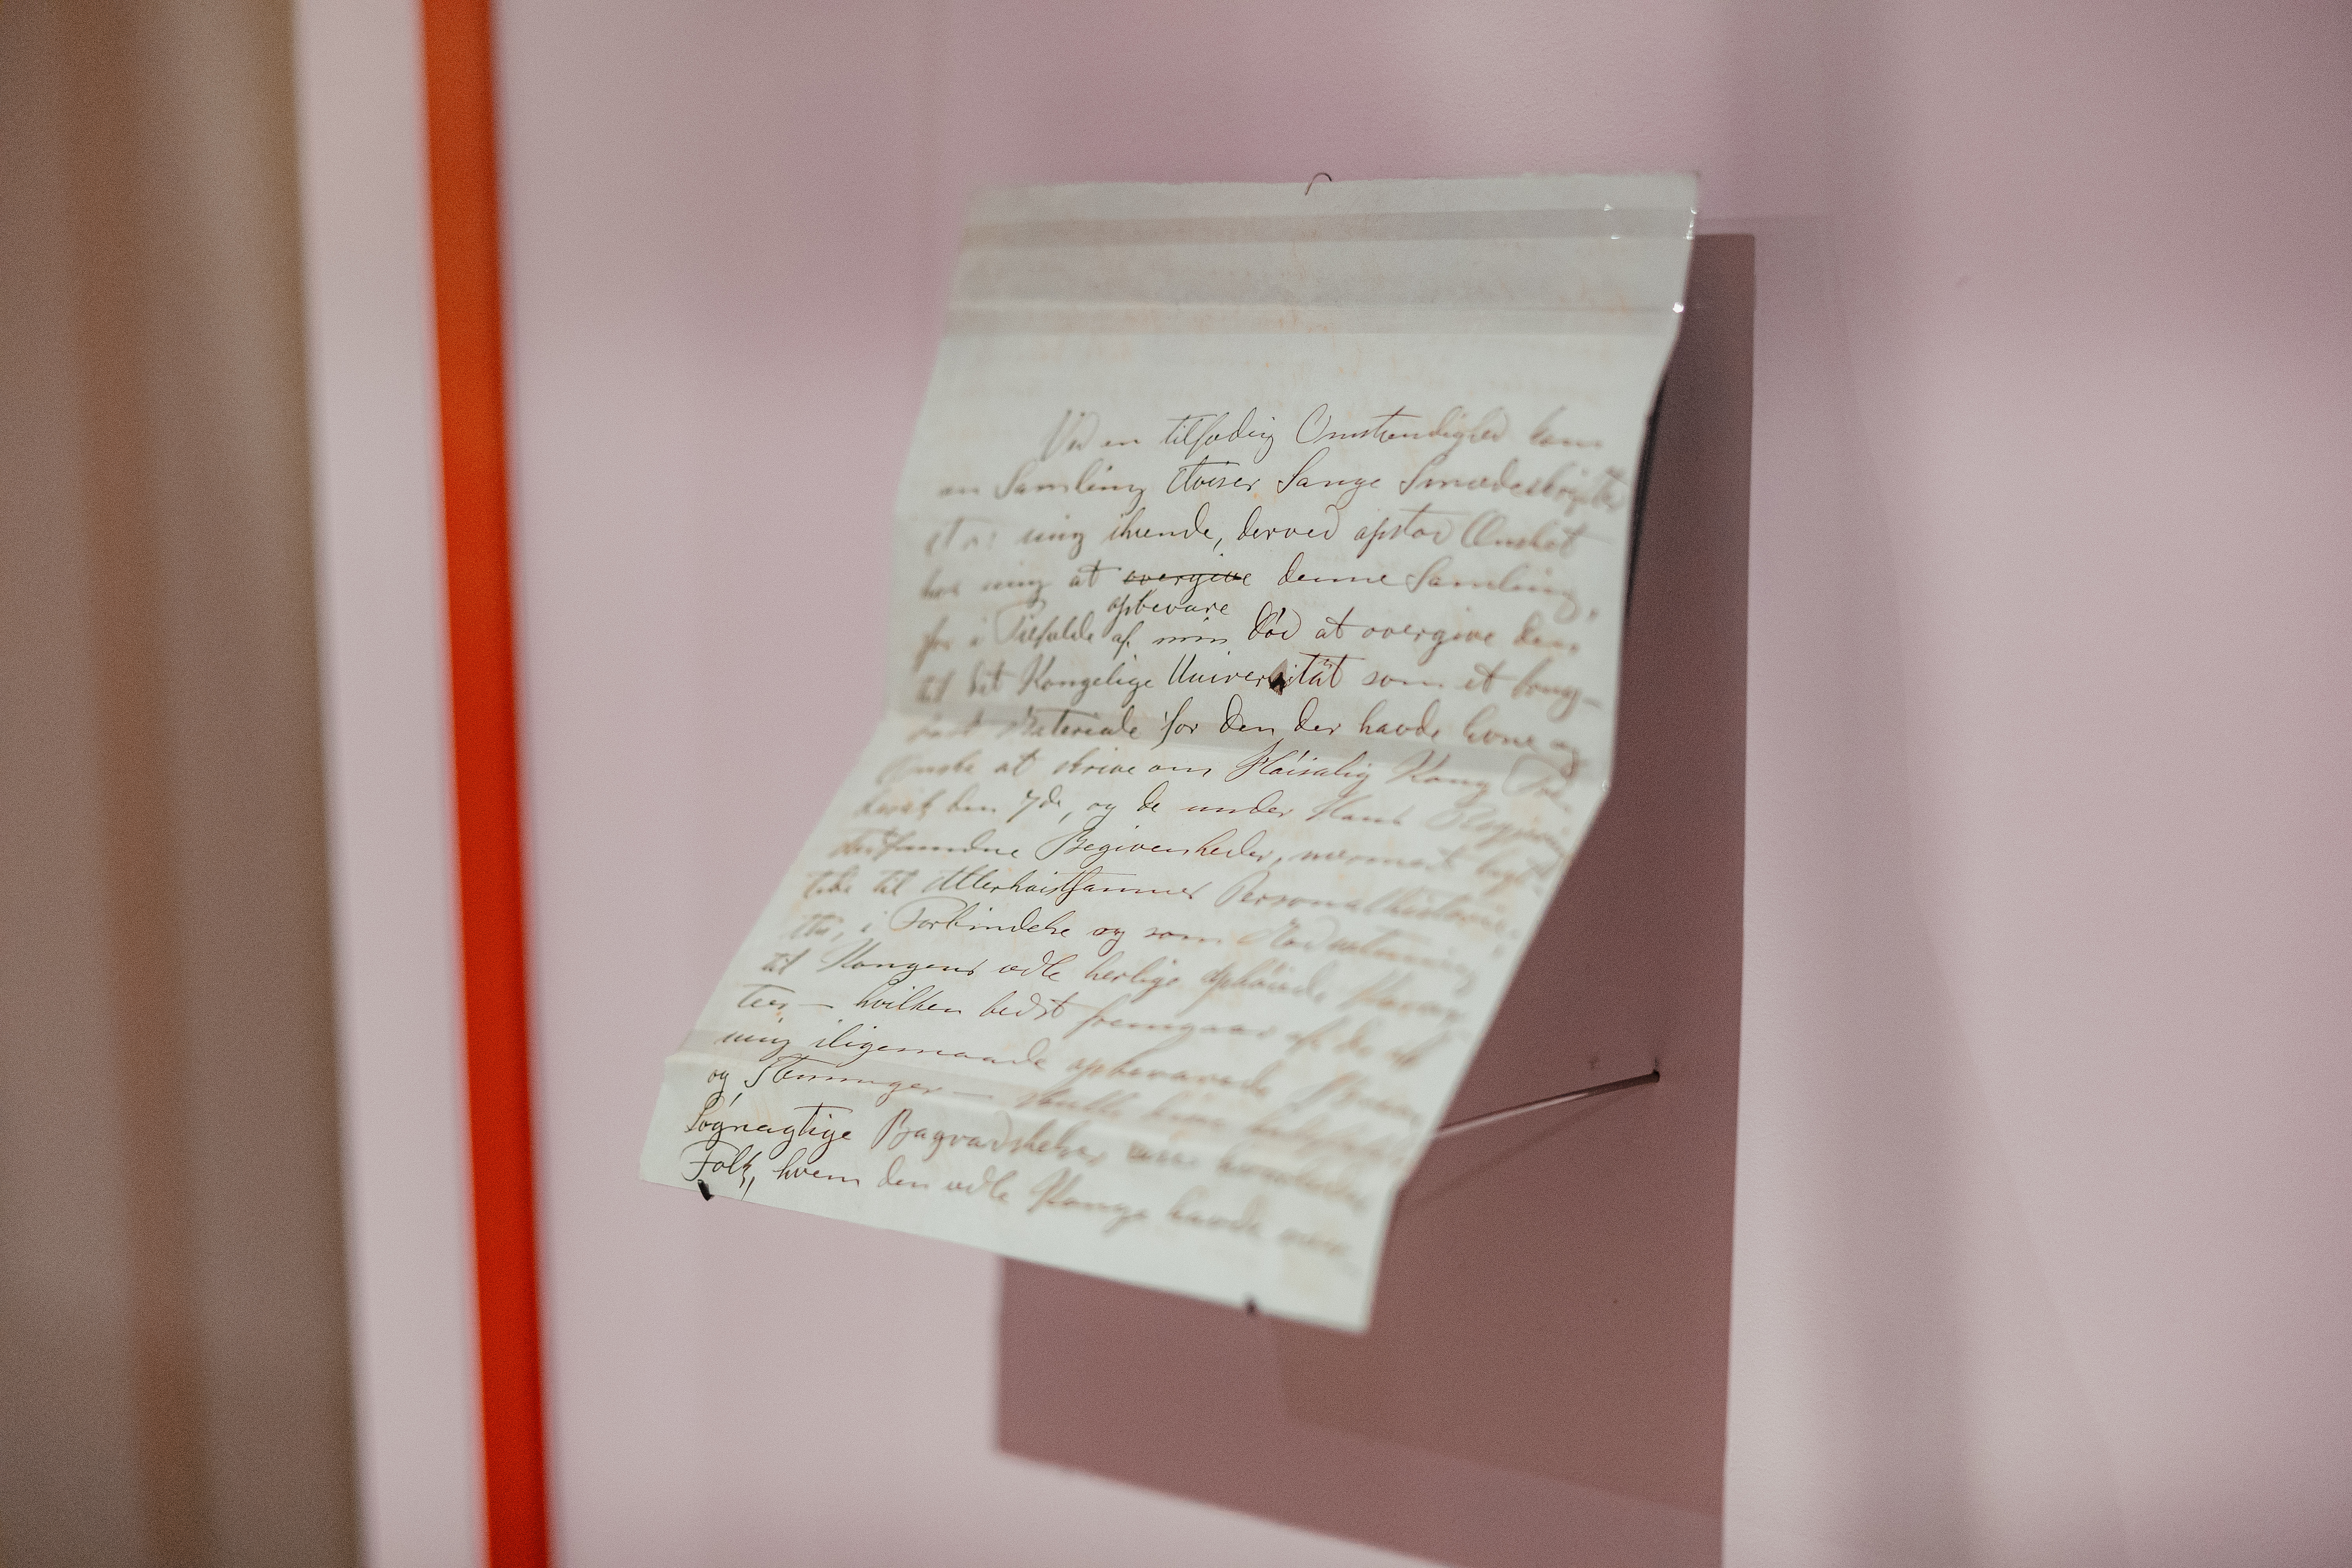 Ved en tilfældig Omstændighed kom
en Samling Aviser Sange Smædeskrifter
mig ihænde, derved opstod Ønsket
hos mig at overgive denne Samling,
opbevare
for i Tilfælde af min Død at overgive den
til det Kongelige Universität som et brug-
bart Materiale for den der havde Evne og
Ønske at skrive om Høisalig Kong Fre-
derik den 7de, og de under Hans
stedfundne Begivenheder, nærmest
til Allerhøistsammes
i Forbindelse og som Modsætning
til Kongens ædle herlige ophøiede Karak-
teer — hvilken bedst fremgaar af de af
mig iligemaade opbevarede
og Stemninger — skulle
Løgnagtige Bagvadskelser
Folk, hvem den ædle Konge havde